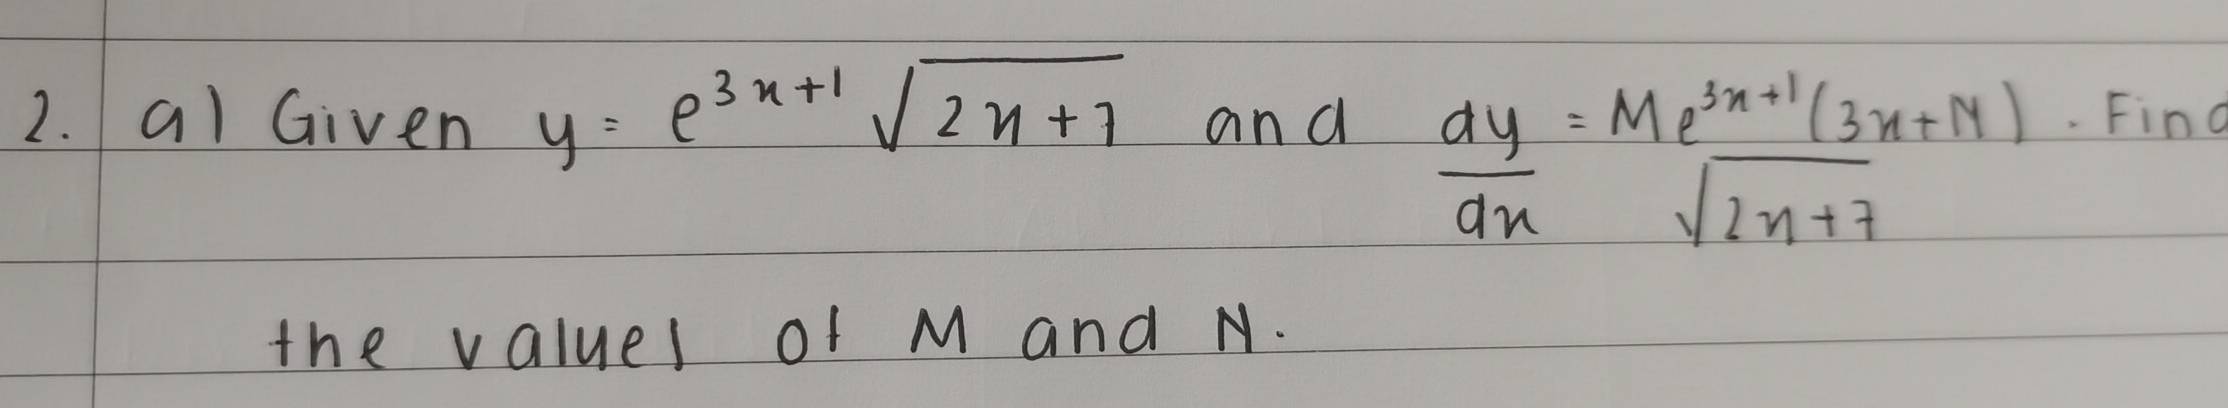 2. a) Given y = e^{3x+1} √(2x+7) and dy/dx = Me^{3x+1}(3x+N)/√(2x+7). Find
the values of M and N.